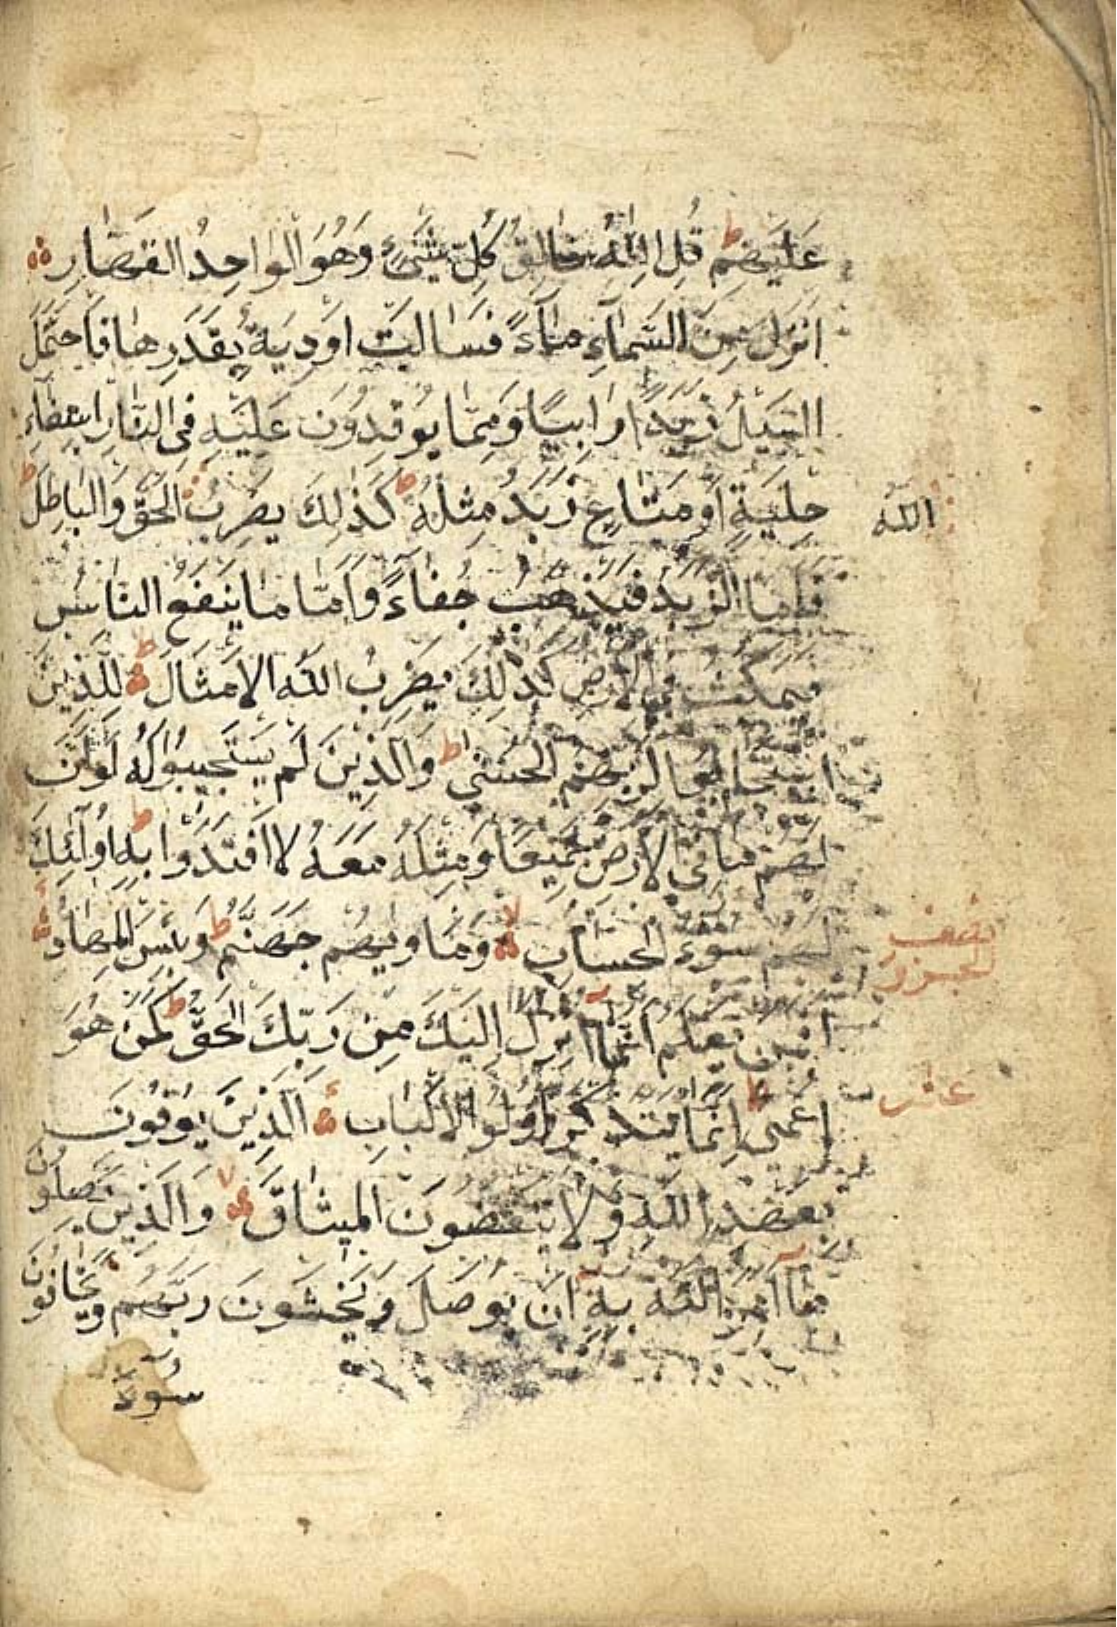 عَلَيْهِمْ ط قُلِ اللّٰهُ خَالِقُ كُلِّ شَيْءٍ وَهُوَ الْوَاحِدُ الْقَهَّارِ
اَنْزَلَ مِنَ السَّمَآءِ مَآءً فَسَالَتْ اَوْدِيَةٌ بِقَدَرِهَا فَاحْتَمَلَ
السَّيْلُ زَبَدًا رَابِيًا وَمِمَّا يُوْقِدُوْنَ عَلَيْهِ فِى النَّارِ ابْتِغَآءَ
حِلْيَةٍ اَوْ مَتَاعٍ زَبَدٌ مِثْلُهُ ط كَذٰلِكَ يَضْرِبُ الْحَقَّ وَالْبَاطِلَ ط
اللّٰهُ
فَاَمَّا الزَّبَدُ فَيَذْهَبُ جُفَآءً وَاَمَّا مَا يَنْفَعُ النَّاسَ
فَيَمْكُثُ فِي الْاَرْضِ كَذٰلِكَ يَضْرِبُ اللّٰهُ الْاَمْثَالَ ط لِلَّذِيْنَ
اسْتَجَابُوْا لِرَبِّهِمُ الْحُسْنٰى ط وَالَّذِيْنَ لَمْ يَسْتَجِيْبُوْا لَهُ لَوْ اَنَّ
لَهُمْ مَا فِي الْاَرْضِ جَمِيْعًا وَمِثْلَهُ مَعَهُ لَافْتَدَوْا بِهِ ط اُولٰٓئِكَ
لَهُمْ سُوْٓءُ الْحِسَابِ لا وَمَاْوٰيهُمْ جَهَنَّمُ ط وَبِئْسَ الْمِهَادُ
نصف
الحزب
اَفَمَنْ يَعْلَمُ اَنَّمَآ اُنْزِلَ اِلَيْكَ مِنْ رَبِّكَ الْحَقُّ ط كَمَنْ هُوَ
اَعْمٰى ط اِنَّمَا يَتَذَكَّرُ اُولُوا الْاَلْبَابِ اَلَّذِيْنَ يُوْفُوْنَ
عاشر
بِعَهْدِ اللّٰهِ وَلَا يَنْقُضُوْنَ الْمِيْثَاقَ لا وَالَّذِيْنَ يَصِلُوْنَ
مَآ اَمَرَ اللّٰهُ بِهٖٓ اَنْ يُوْصَلَ وَيَخْشَوْنَ رَبَّهُمْ وَيَخَافُوْنَ
سُوْٓءَ